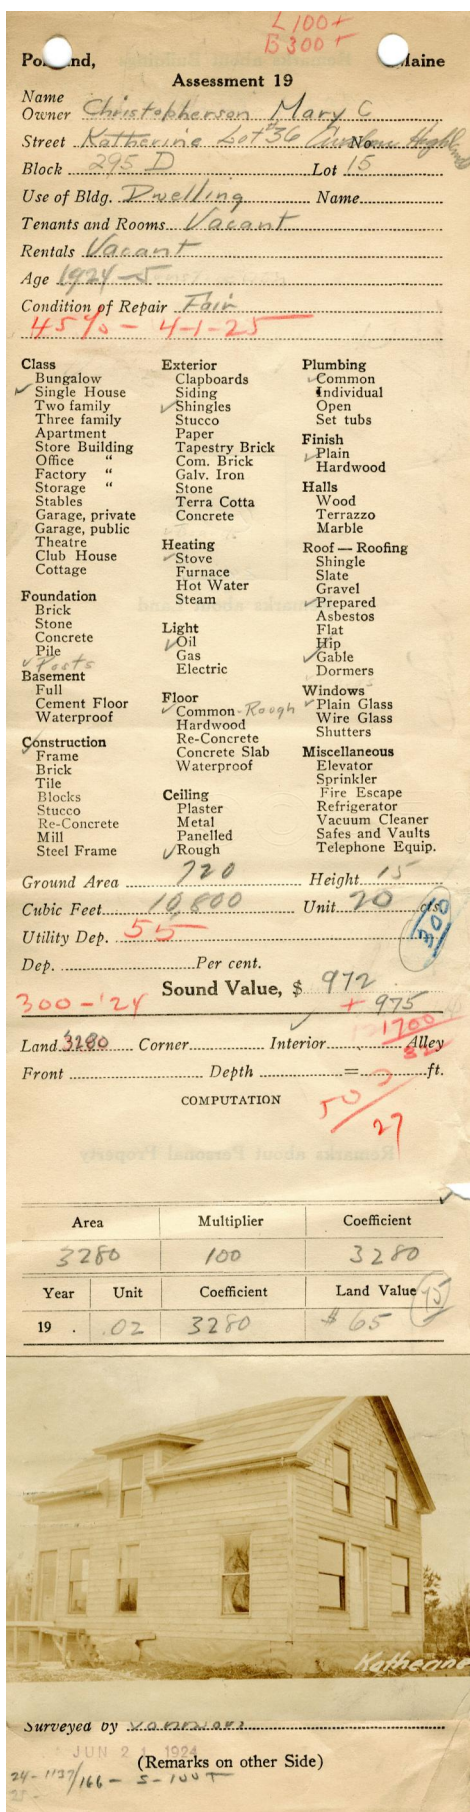 L 100+
B 300+
Portland, Maine
Assessment 19
Name
Owner Christopherson Mary C
Street Katherine Lot #36 No. Highlands
Block 295 D Lot 15
Use of Bldg. Dwelling Name
Tenants and Rooms Vacant
Rentals Vacant
Age 1924-5
Condition of Repair Fair
45% - 4-1-25
Class
Bungalow
✓ Single House
Two family
Three family
Apartment
Store Building
Office "
Factory "
Storage "
Stables
Garage, private
Garage, public
Theatre
Club House
Cottage
Foundation
Brick
Stone
Concrete
Pile
✓ Posts
Basement
Full
Cement Floor
Waterproof
Construction
✓ Frame
Brick
Tile
Blocks
Stucco
Re-Concrete
Mill
Steel Frame
Exterior
Clapboards
Siding
✓ Shingles
Stucco
Paper
Tapestry Brick
Com. Brick
Galv. Iron
Stone
Terra Cotta
Concrete
Heating
✓ Stove
Furnace
Hot Water
Steam
Light
✓ Oil
Gas
Electric
Floor
✓ Common - Rough
Hardwood
Re-Concrete
Concrete Slab
Waterproof
Ceiling
Plaster
Metal
Panelled
✓ Rough
Plumbing
✓ Common
Individual
Open
Set tubs
Finish
✓ Plain
Hardwood
Halls
Wood
Terrazzo
Marble
Roof — Roofing
Shingle
Slate
Gravel
✓ Prepared
Asbestos
Flat
Hip
✓ Gable
Dormers
Windows
✓ Plain Glass
Wire Glass
Shutters
Miscellaneous
Elevator
Sprinkler
Fire Escape
Refrigerator
Vacuum Cleaner
Safes and Vaults
Telephone Equip.
Ground Area 720 Height 15
Cubic Feet 10,800 Unit 20 cts.
300
Utility Dep. 55
Dep. Per cent.
Sound Value, $ 972
300 - '24 + 975
1700
Land 3280 Corner Interior ✓ Alley
Front Depth = ft.
COMPUTATION
50
27
Area Multiplier Coefficient
3280 100 3280
Year Unit Coefficient Land Value 75
19 . .02 3280 $ 65
Katherine
Surveyed by
JUN 21 1924
(Remarks on other Side)
24-1137/166 - S-100+
25-